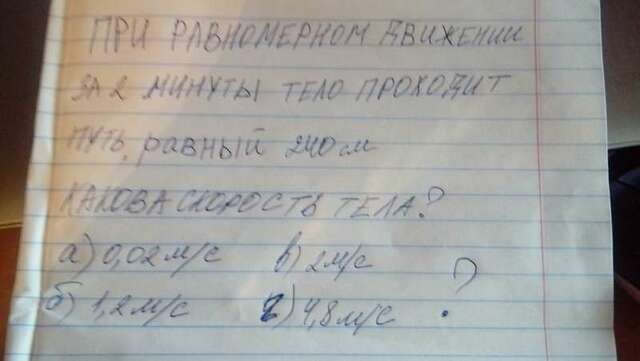 ПРИ РАВНОМЕРНОМ ДВИЖЕНИИ
ЗА 2 МИНУТЫ ТЕЛО ПРОХОДИТ
ПУТЬ, равный 240 м
КАКОВА СКОРОСТЬ ТЕЛА?
а) 0,02 м/с в) 2 м/с
б) 1,2 м/с г) 4,8 м/с ?